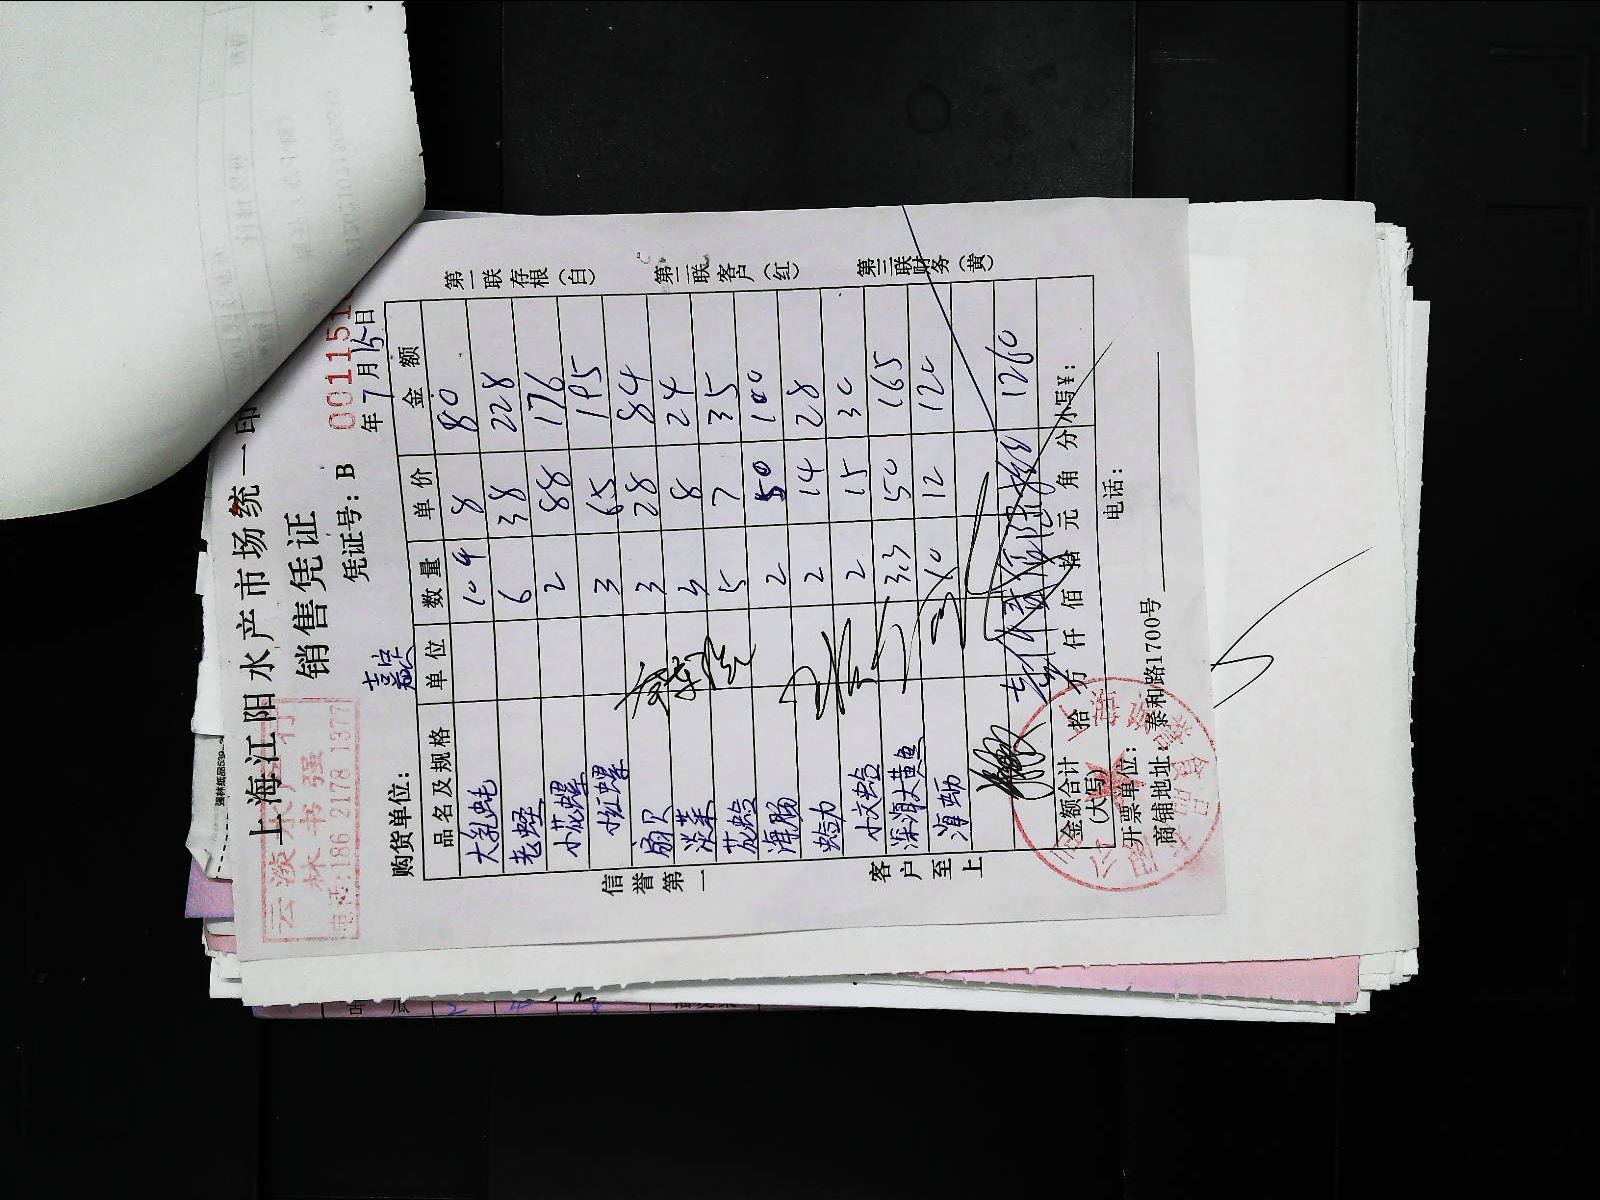 上海江阳水产市场统一印
销售凭证
凭证号:B 001151
云淡水产行
林书强
电话:186 2178 1377
购货单位:
年7月15日
品名及规格 单位 数量 单价 金额
大乳蚝 10 8 80
老蛏 6 38 228
小花螺 2 88 176
小红螺 3 65 195
扇贝 3 28 84
淡菜 8 24
花蛤 5 7 35
海肠 2 50 100
蛤力 2 14 28
小文蛤 2 15 30
深海大黄鱼 3.3 50 165
海蛎 10 12 120
1260
金额合计(大写) 拾 万 仟 佰 拾 元 角 分 小写¥:
开票单位: 电话:
商铺地址:泰和路1700号
信誉第一
客户至上
第一联存根(白)
第二联客户(红)
第三联财务(黄)